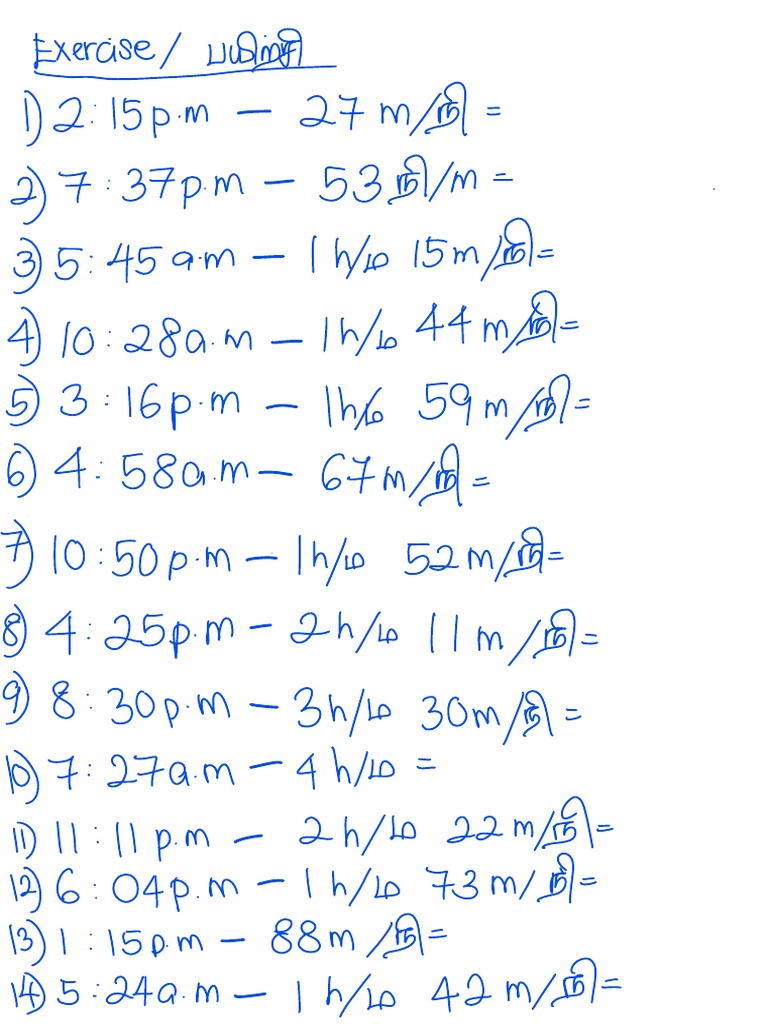 Exercise / பயிற்சி
1) 2:15 p.m — 27 m/நி =
2) 7:37 p.m — 53 நி/m =
3) 5:45 a.m — 1 h/ம 15 m/நி =
4) 10:28 a.m — 1 h/ம 44 m/நி =
5) 3:16 p.m — 1 h/ம 59 m/நி =
6) 4:58 a.m — 67 m/நி =
7) 10:50 p.m — 1 h/ம 52 m/நி =
8) 4:25 p.m — 2 h/ம 11 m/நி =
9) 8:30 p.m — 3 h/ம 30 m/நி =
10) 7:27 a.m — 4 h/ம =
11) 11:11 p.m — 2 h/ம 22 m/நி =
12) 6:04 p.m — 1 h/ம 73 m/நி =
13) 1:15 p.m — 88 m/நி =
14) 5:24 a.m — 1 h/ம 42 m/நி =